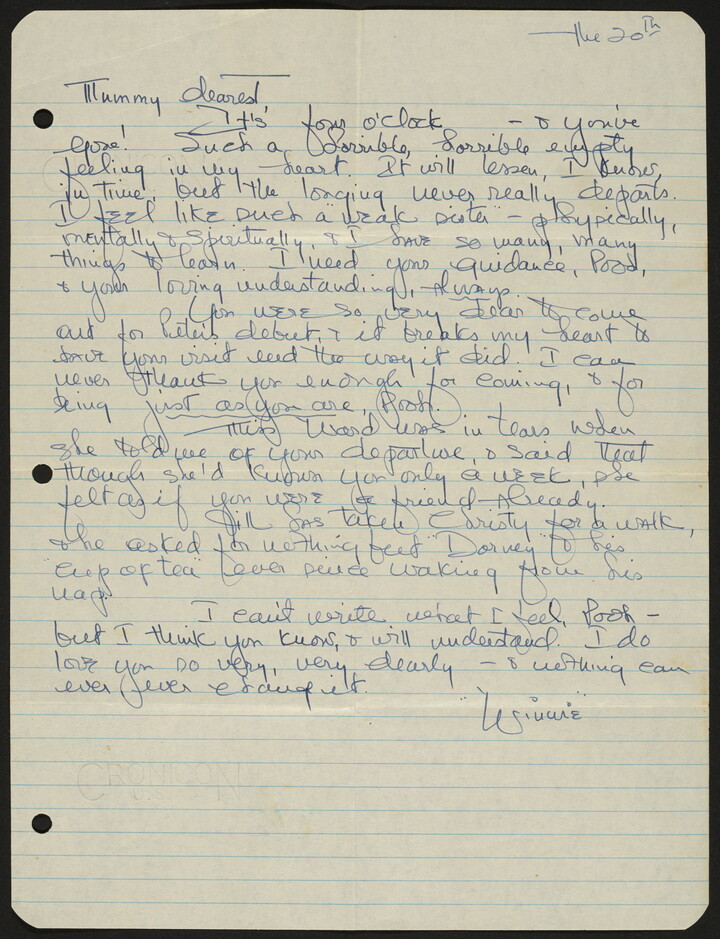 The 20th
Mummy dearest,
It's four o'clock — & you've
gone! Such a horrible, horrible empty
feeling in my heart. It will lessen, I know,
in time, but the longing never really departs.
I feel like such a weak sister — physically,
mentally & spiritually, & I have so many, many
things to learn. I need your guidance, Pooh,
& your loving understanding, always.
You were so very dear to come
out for Peter's debut, & it breaks my heart to
have your visit end the way it did. I can
never thank you enough for coming, & for
being just as you are, Pooh.
Miss Ward was in tears when
she told me of your departure, & said that
though she'd known you only a week, she
felt as if you were a friend already.
Jill has taken Christy for a walk,
& he asked for nothing but "Dorney" & his
"cup of tea" ever since waking from his
nap.
I can't write what I feel, Pooh —
but I think you know, & will understand. I do
love you so very, very dearly — & nothing can
ever, ever change it.
Winnie